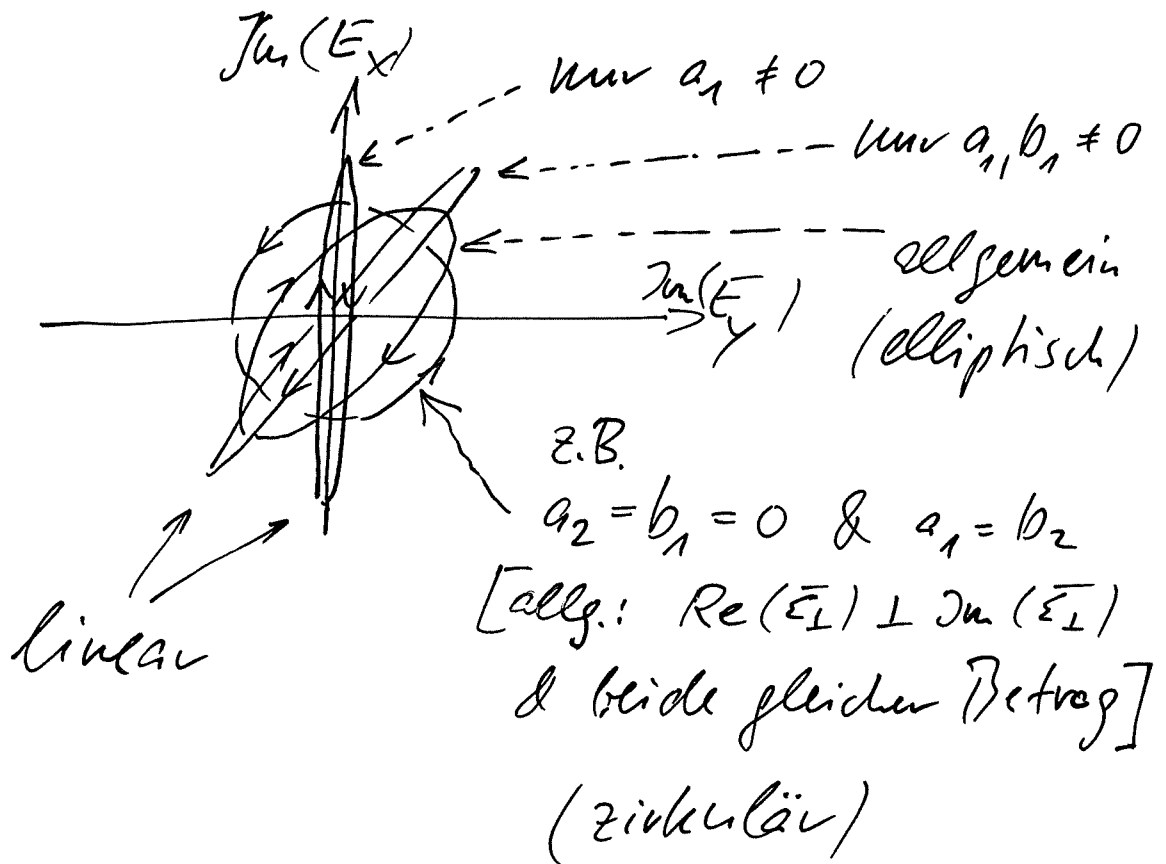 Im(E_x)
nur a_1 ≠ 0
nur a_1, b_1 ≠ 0
allgemein
(elliptisch)
Im(E_y)
z.B.
a_2 = b_1 = 0 & a_1 = b_2
[allg.: Re(E_⊥) ⊥ Im(E_⊥)
& beide gleicher Betrag]
(zirkulär)
linear